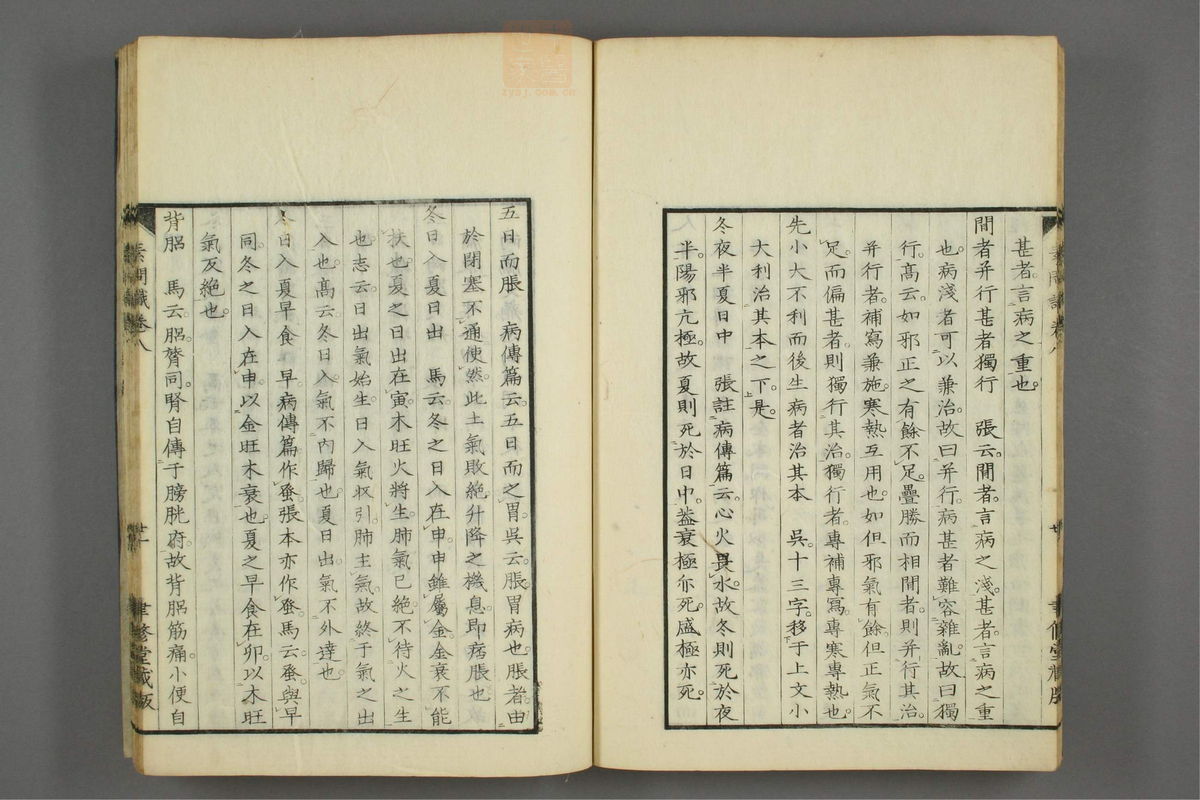 甚者。言病之重也。
間者并行甚者獨行　張云。間者。言病之淺。甚者。言病之重
也。病淺者。可以兼治。故曰并行。病甚者。難容雜亂。故曰獨
行。高云。如邪正之有餘不足。疊勝而相間者。則并行其治。
并行者。補寫兼施。寒熱互用也。如但邪氣有餘。但正氣不
足。而偏甚者。則獨行其治。獨行者。專補專寫。專寒專熱也。
先小大不利而後生病者治其本　吳十三字。移于上文小
大利治其本之下。是。
冬夜半夏日中　張註病傳篇云。心火畏水。故冬則死於夜
半。陽邪亢極。故夏則死於日中。蓋衰極亦死。盛極亦死。
五日而脹　病傳篇云。五日而之胃。吳云。脹。胃病也。脹者。由
於閉塞不通使然。此土氣敗絕。升降之機息。即痞脹也。
冬日入夏日出　馬云。冬之日入在申。申雖屬金。金衰不能
扶也。夏之日出在寅。木旺火將生。肺氣已絕。不待火之生
也。志云。日出氣始生。日入氣收引。肺主氣。故終于氣之出
入也。高云。冬日入。氣不內歸也。夏日出。氣不外達也。
冬日入夏早食　早。病傳篇作蚤。張本亦作蚤。馬云。蚤與早
同。冬之日入在申。以金旺木衰也。夏之早食在卯。以木旺
氣反絕也。
背䏚　馬云。䏚膂同。腎自傳于膀胱府。故背䏚筋痛。小便自
素問識卷八
廿一
聿修堂藏版